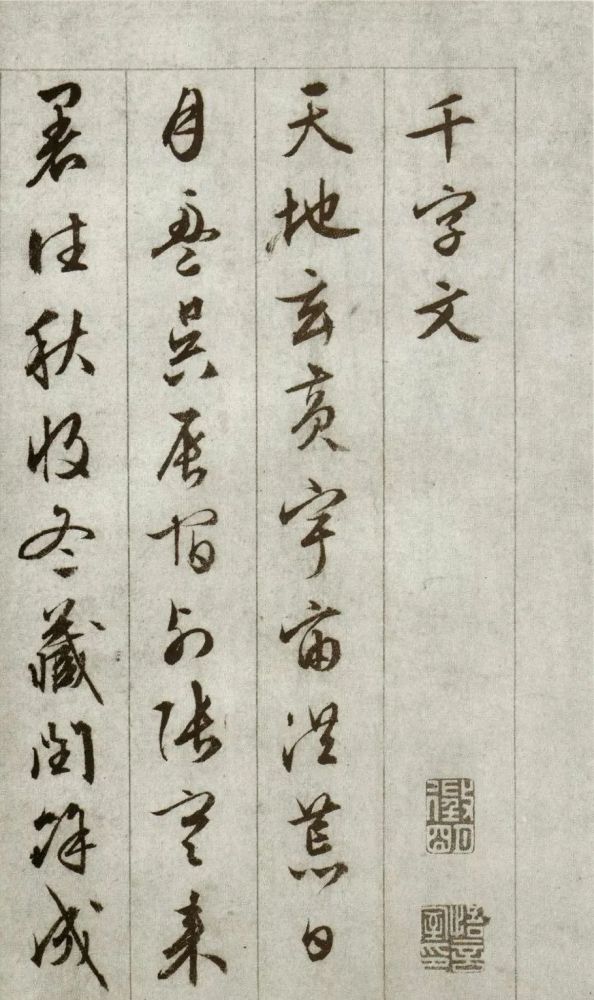 千字文
天地玄黃宇宙洪荒日
月盈昃辰宿列張寒來
暑往秋收冬藏閏餘成
徵明
悟言室印